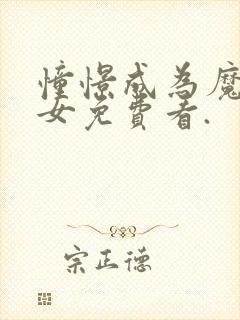 憧憬成為魔
女免費看.
宗正德